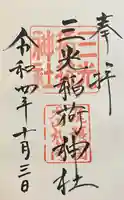 奉拝
三光稲荷神社
令和四年十月三日